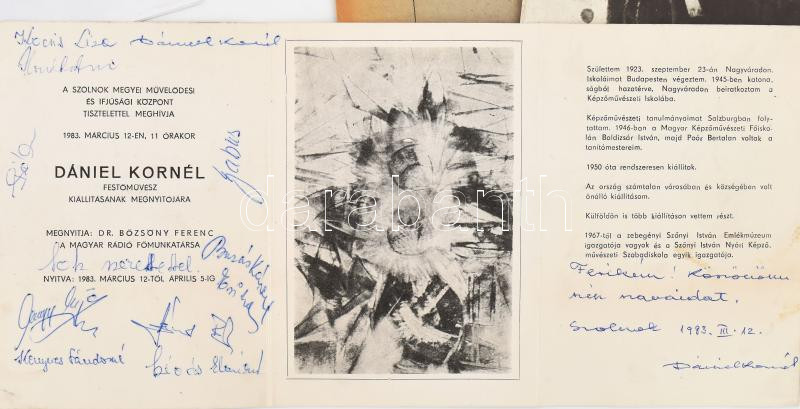 Kocsis Liza Dániel Kornél
A SZOLNOK MEGYEI MŰVELŐDÉSI
ÉS IFJÚSÁGI KÖZPONT
TISZTELETTEL MEGHÍVJA
1983. MÁRCIUS 12-ÉN, 11 ÓRAKOR
DÁNIEL KORNÉL
FESTŐMŰVÉSZ
KIÁLLÍTÁSÁNAK MEGNYITÓJÁRA
MEGNYITJA: DR. BÖZSÖNY FERENC
A MAGYAR RÁDIÓ FŐMUNKATÁRSA
Sok szeretettel.
NYITVA: 1983. MÁRCIUS 12-TŐL ÁPRILIS 5-IG
Kenyves Sándorné
darabanth
Születtem 1923. szeptember 23-án Nagyváradon.
Iskoláimat Budapesten végeztem. 1945-ben katona-
ságból hazatérve, Nagyváradon beiratkoztam a
Képzőművészeti Iskolába.
Képzőművészeti tanulmányaimat Salzburgban foly-
tattam. 1946-ban a Magyar Képzőművészeti Főiskolán
Boldizsár István, majd Poór Bertalan voltak a
tanítómestereim.
1950 óta rendszeresen kiállítok.
Az ország számtalan városában és községében volt
önálló kiállításom.
Külföldön is több kiállításon vettem részt.
1967-től a zebegényi Szőnyi István Emlékmúzeum
igazgatója vagyok és a Szőnyi István Nyári Képző-
művészeti Szabadiskola egyik igazgatója.
Ferikém! Köszönöm
szép szavaidat.
Szolnok 1983. III. 12.
Dániel Kornél